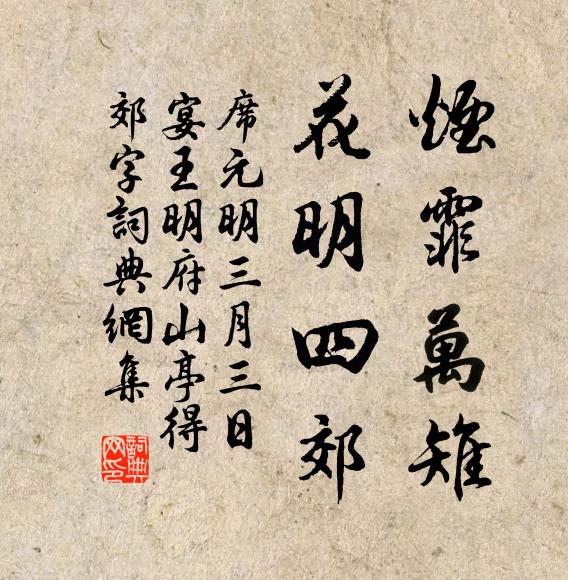 煙霏萬雉
花明四郊
席元明三月三日
宴王明府山亭得
郊字詞典網集
詞典
网印